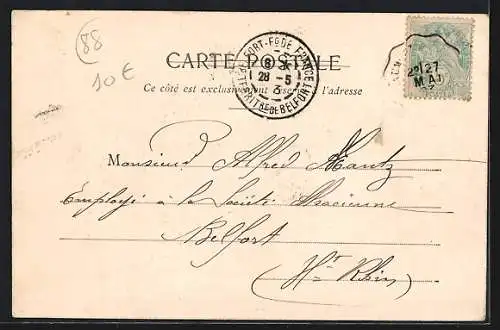 88
10 €
CARTE POSTALE
Ce côté est exclusivement réservé à l'adresse
BELFORT-FG DE FRANCE
8
28 - 5
3
TERRIT RE DE BELFORT
27
MAI
Monsieur Alfred Mantz
Employé à la Société Alsacienne
Belfort
(Ht Rhin)